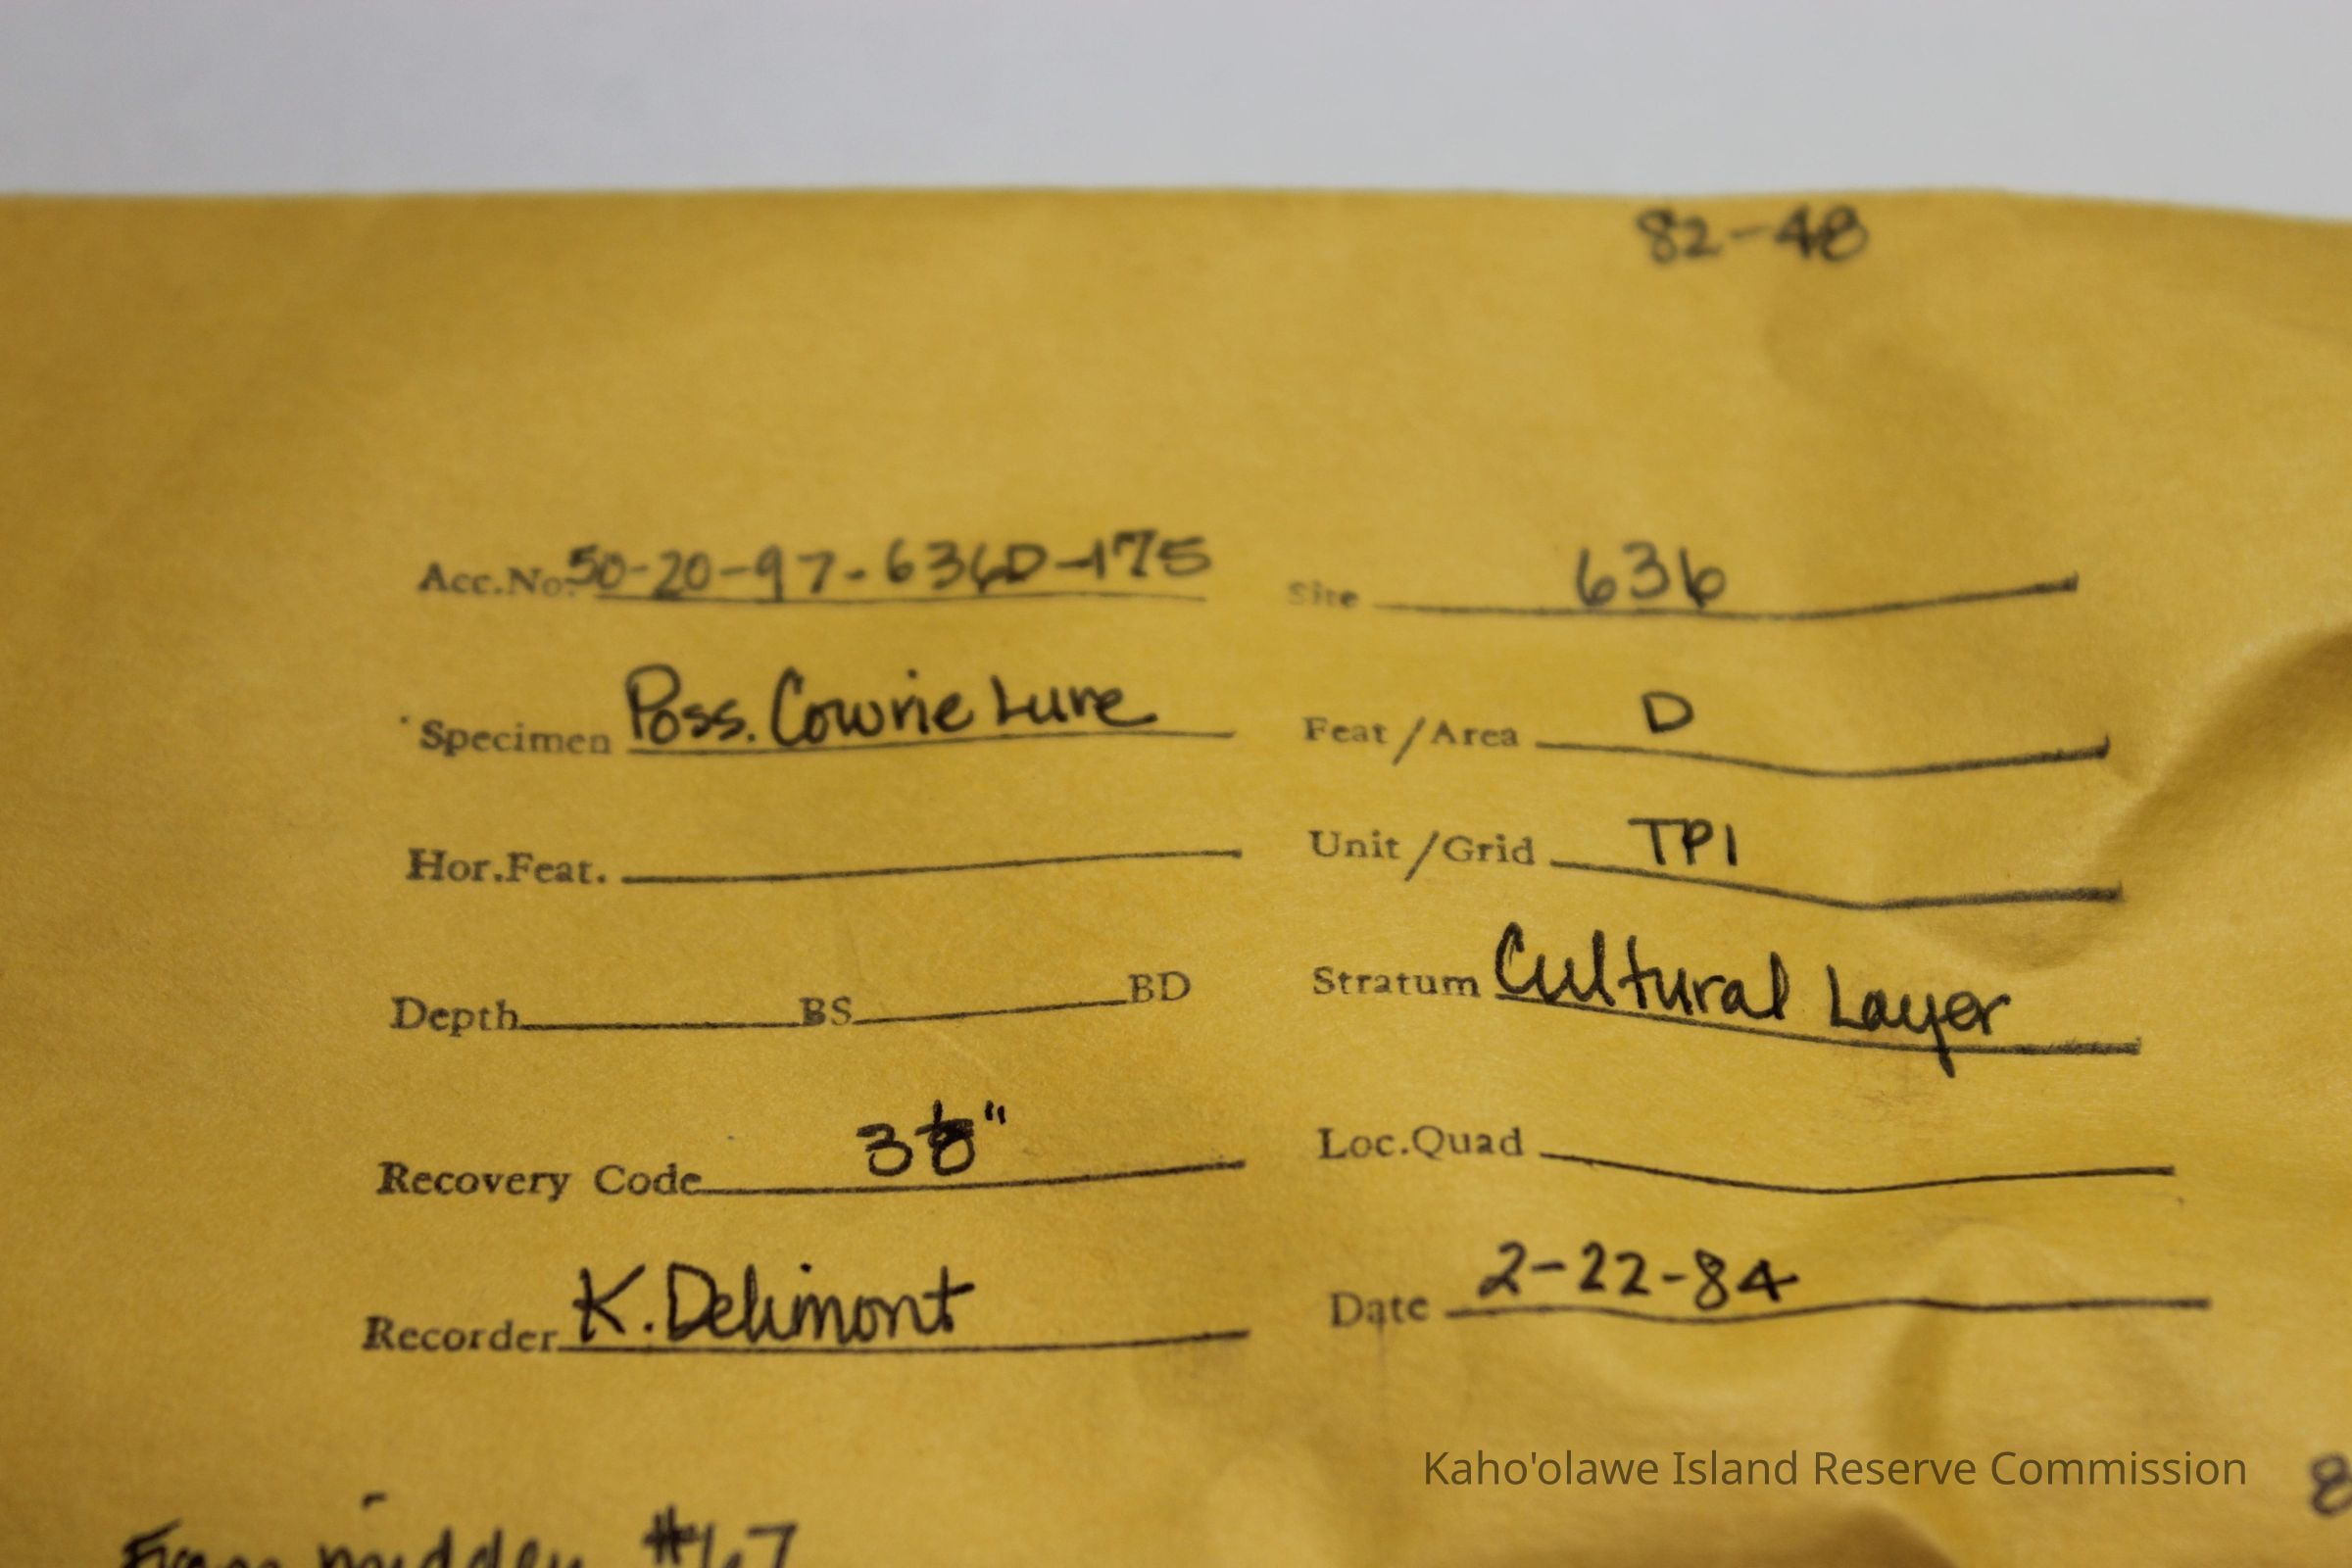 82-48
Acc.No. 50-20-97-636D-175 Site 636
Specimen Poss. Cowrie Lure Feat/Area D
Hor.Feat. Unit/Grid TP1
Depth BS BD Stratum Cultural Layer
Recovery Code 3 1/8" Loc.Quad
Recorder K. Delimont Date 2-22-84
Kaho'olawe Island Reserve Commission
From midden #67